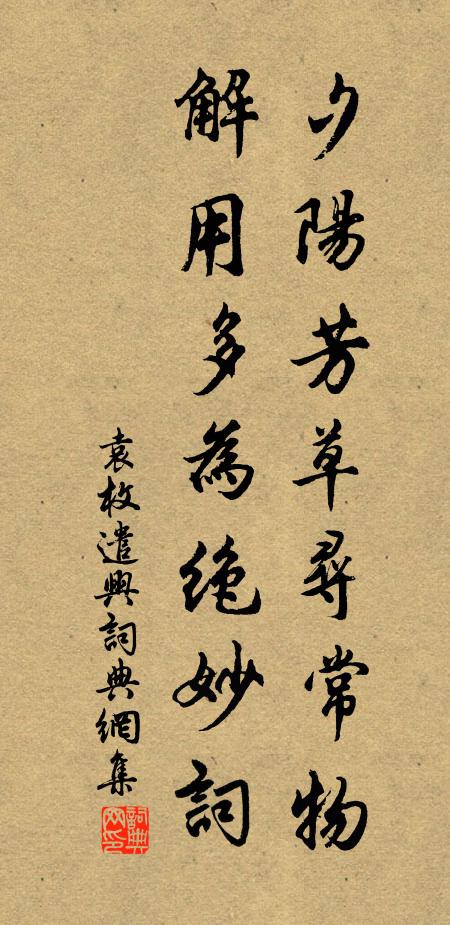 夕陽芳草尋常物
解用多為絶妙詞
袁枚遣興詞典網集
詞典网印